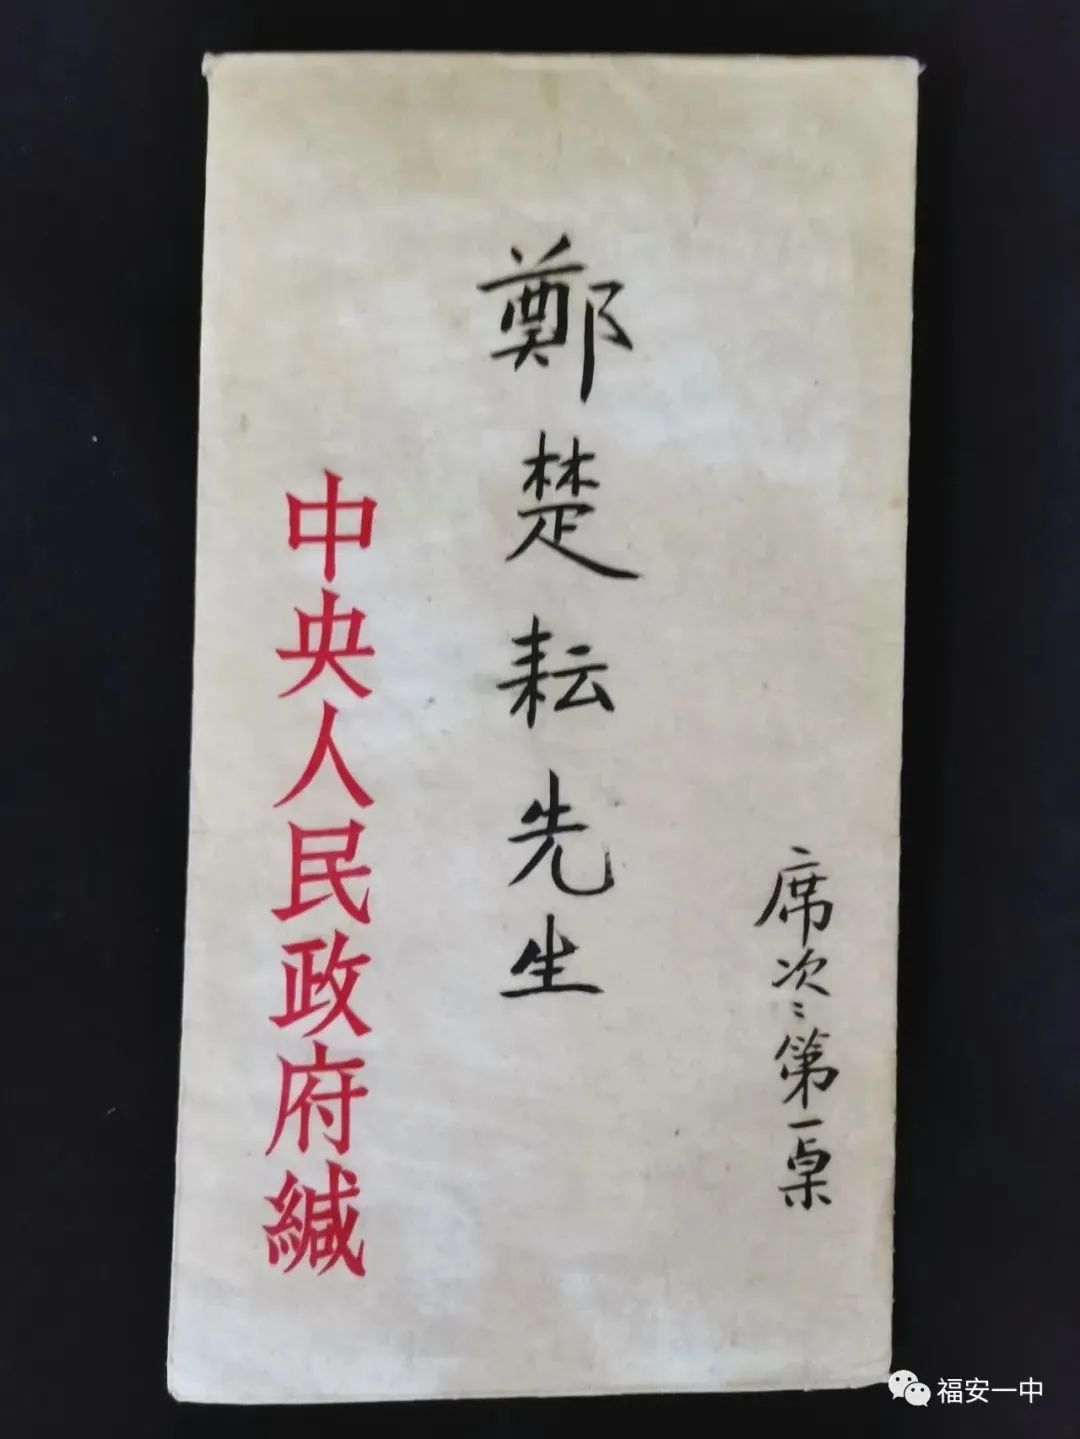 席次：第一桌
鄭楚耘先生
中央人民政府緘
福安一中